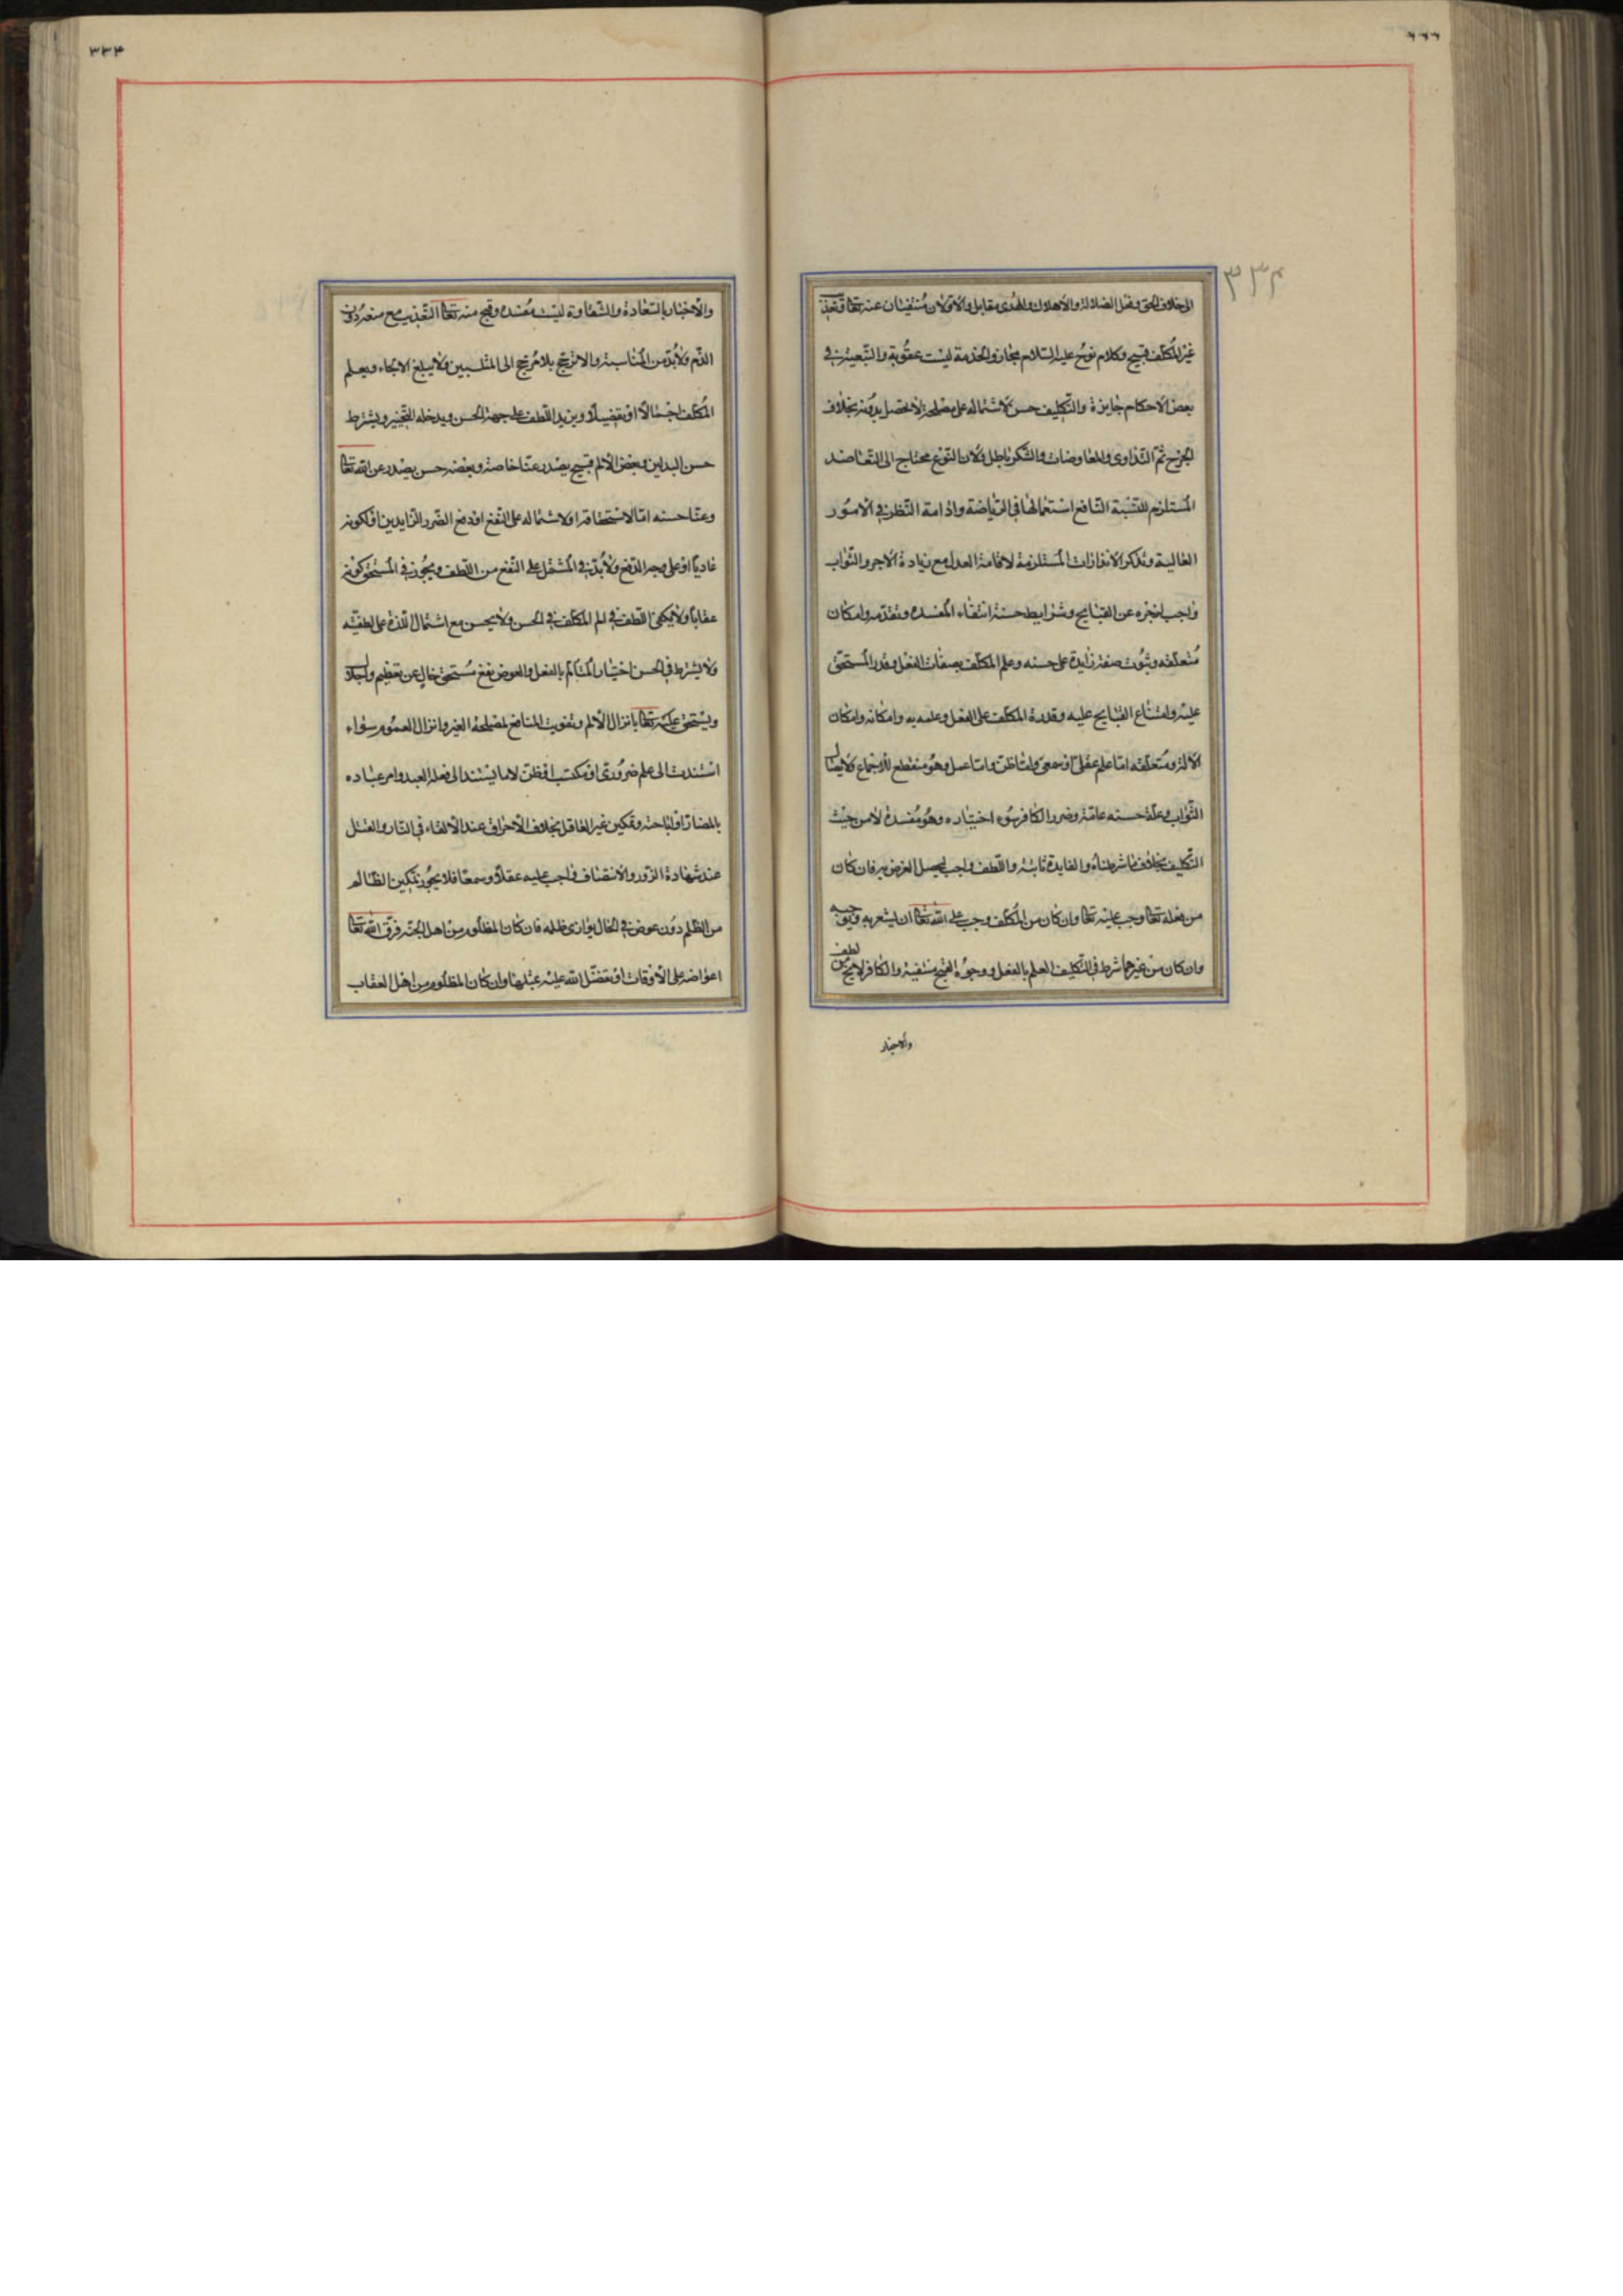 ۳۳۴
الى خلاف الحق وفعل الضلالة والاهلاك والهدى مقابل والاولان منتفيان عنه تعالى وتعذيب
غير المكلف قبيح وكلام نوح عليه السلام مجاز والخدمة ليست عقوبة والتبعية في
بعض الاحكام جايزة والتكليف حسن لاشتماله على مصلحة لا تحصل بدونه بخلاف
الجرح ثم التداوى والمعاوضات والشكر باطل ولان النوع محتاج الى التعاضد
المستلزم للسنة النافع استعمالها في الرياضة وادامة النظر في الامور
العالية وتذكر الانذارات المستلزمة لاقامة العدل مع زيادة الاجر والثواب
واجب لزجره عن القبايح وشرايط حسنه انتفاء المفسده وتقدمه وامكان
متعلقه وثبوت صفة زايدة على حسنه وعلم المكلف بصفات الفعل وقدر المستحق
عليه وامتناع القبايح عليه وقدرة المكلف على الفعل وعلمه به وامكانه وامكان
الآلة ومتعلقه اما علم عقلى او سمعى واما ظن واما عمل وهو منقطع للاجماع ولايصال
الثواب وعلة حسنه عامة وضرر الكافر بسوء اختياره وهو مفسدة لا من حيث
التكليف بخلاف ما شرطناه والفايدة ثابتة واللطف واجب ليحصل الغرض به فان كان
من فعله تعالى وجب عليه تعالى وان كان من المكلف وجب على الله تعالى ان يشعر به ويوجبه
وان كان من غيرهما شرط في التكليف العلم بالفعل ووجوه القبح منتفية والكافر لا يخ من لطف
والاخبار
۳۳۴
والاخبار بالسعادة والشقاوة ليست مفسده وقبح منه تعالى التعذيب مع منعه دون
الذم ولابد من المناسبة والا ترجح بلا مرجح الى المنتسبين ولا يبلغ الالجاء ويعلم
المكلف اجمالا او تفصيلا ويزيد اللطف على جهة الحسن ويدخله التخيير ويشترط
حسن البدلين وبعض الالم قبيح يصدر عنا خاصة وبعضه حسن يصدر عن الله تعالى
وعنا حسنه اما لاستحقاقه او لاشتماله على النفع او دفع الضرر الزايدين او لكونه
عاديا او على وجه الدفع ولابد في المشتمل على النفع من اللطف ويجوز في المستحق كونه
عقابا ولا يكفى اللطف في الم المكلف في الحسن ولا يحسن مع اشتمال اللذة على لطفيته
ولا يشترط في الحسن اختيار المتالم بالفعل والعوض نفع مستحق خال عن تعظيم واجلال
ويستحق عليه تعالى بانزال الالم وتفويت المنافع لمصلحة الغير وانزال الغموم سواء
استندت الى علم ضرورى او مكتسب او ظن لا ما يستند الى فعل العبد وامر عباده
بالمضار او اباحته وتمكين غير العاقل بخلاف الاحراق عند الالقاء في النار والقتل
عند شهادة الزور والانتصاف واجب عليه عقلا وسمعا فلا يجوز تمكين الظالم
من الظلم دون عوض في الحال يوازى ظلمه فان كان المظلوم من اهل الجنة فرق الله تعالى
اعواضه على الاوقات او تفضل الله عليه بمثلها وان كان المظلوم من اهل العقاب